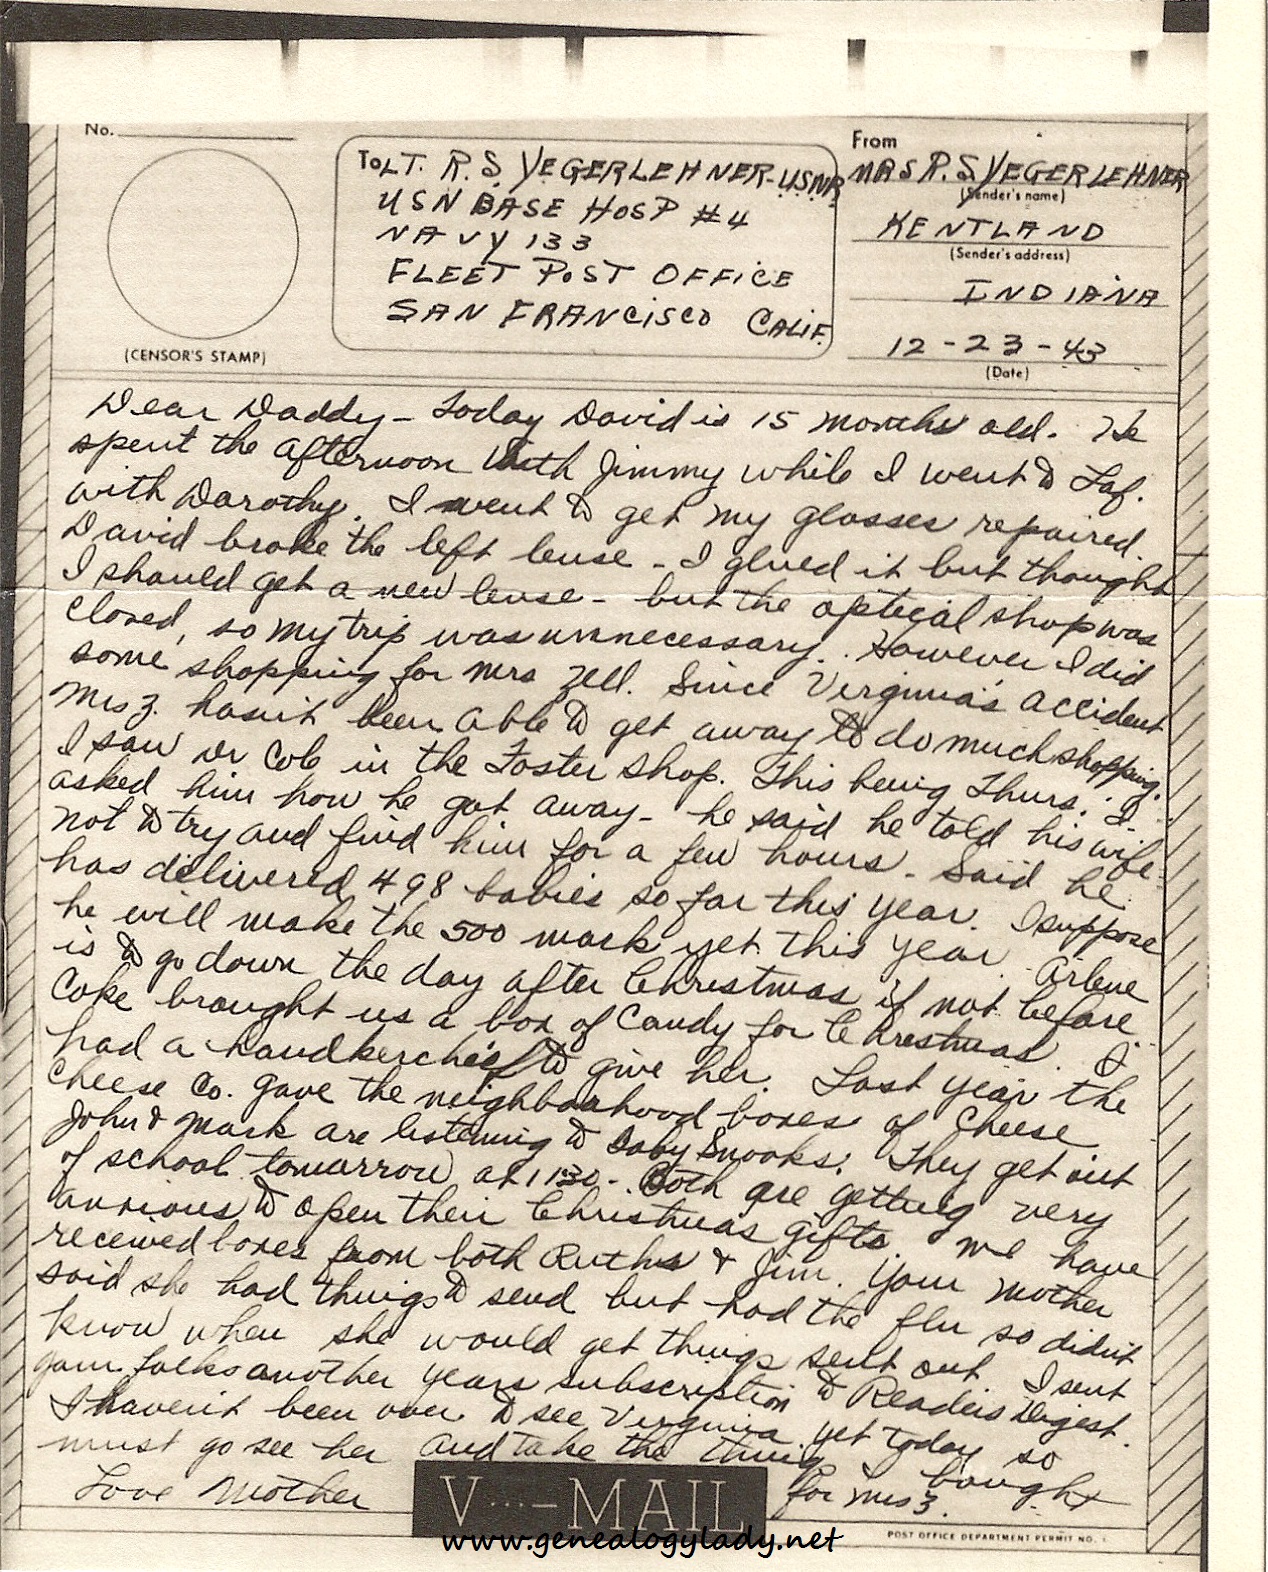 No.
(CENSOR'S STAMP)
To LT. R. S. YEGERLEHNER-USNR
USN BASE HOSP #4
NAVY 133
FLEET POST OFFICE
SAN FRANCISCO CALIF.
From
MRS R. S YEGERLEHNER
(Sender's name)
KENTLAND
(Sender's address)
INDIANA
12-23-43
(Date)
Dear Daddy - Today David is 15 months old. He
spent the afternoon with Jimmy while I went to Laf.
with Dorothy. I went to get my glasses repaired.
David broke the left lense - I glued it but thought
I should get a new lense - but the optical shop was
closed, so my trip was unnecessary. However I did
some shopping for Mrs Zell. Since Virginia's accident
Mrs Z. hasn't been able to get away to do much shopping.
I saw Dr Cole in the Foster shop. This being Thurs. I
asked him how he got away - he said he told his wife
not to try and find him for a few hours - Said he
has delivered 498 babies so far this year. I suppose
he will make the 500 mark yet this year. Arlene
is to go down the day after Christmas if not before
Coke brought us a box of Candy for Christmas. I
had a handkerchief to give her. Last year the
Cheese Co. gave the neighborhood boxes of Cheese
John & Mark are listening to Baby Snooks. They get out
of school tomorrow at 1130 - Both are getting very
anxious to open their Christmas gifts. We have
received boxes from both Ruths & Jim. Your mother
said she had things to send but had the flu so didn't
know when she would get things sent out I sent
your folks another years subscription to Readers Digest.
I haven't been over to see Virginia yet today so
must go see her and take the things I bought
Love Mother for Mrs Z.
V···—MAIL
POST OFFICE DEPARTMENT PERMIT NO. 1
www.genealogylady.net